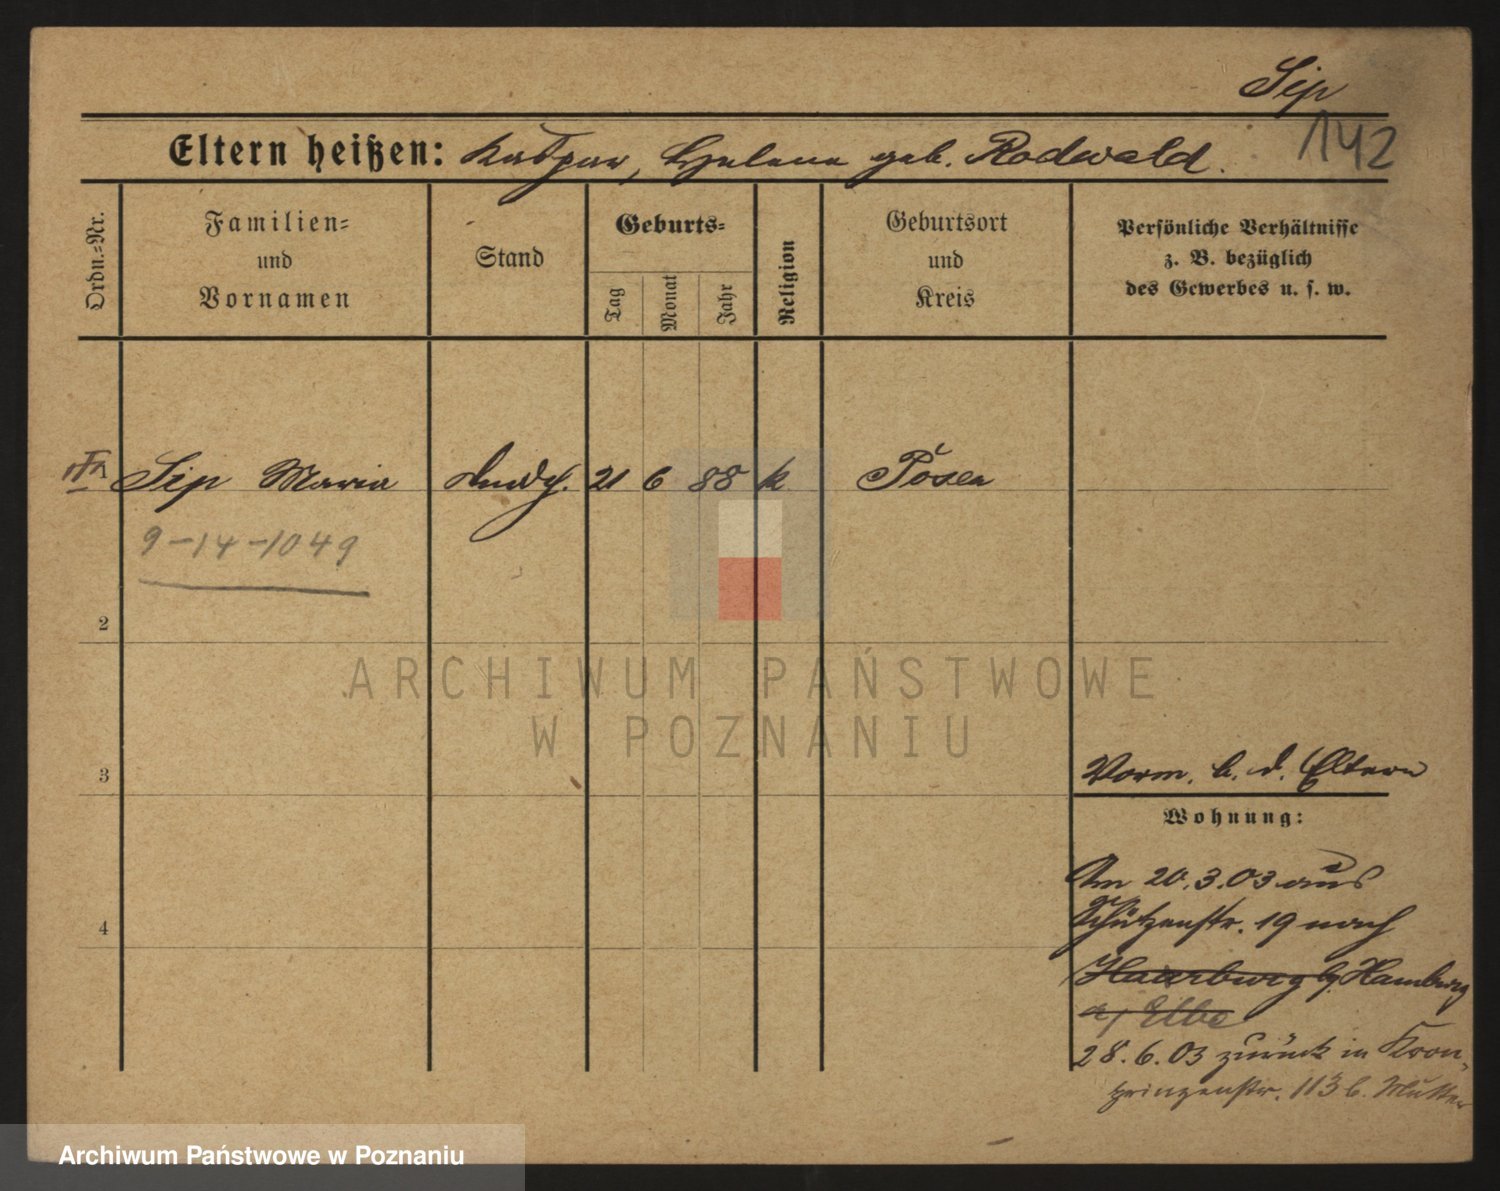 Sip
142
Eltern heißen: Kaspar, Helene geb. Rodwald.
Ordn.=Nr.
Familien=
und
Vornamen
Stand
Geburts=
Tag
Monat
Jahr
Religion
Geburtsort
und
Kreis
Persönliche Verhältnisse
z. B. bezüglich
des Gewerbes u. s. w.
Sip Maria 21 6 88 k Posen
9-14-1049
2
ARCHIWUM PAŃSTWOWE
W POZNANIU
3
Vorm. b. d. Eltern
Wohnung:
Am 20.3.03 aus
Schützenstr. 19 nach
4
Haarburg b. Hamburg
a/ Elbe
28.6.03 zurück in Kron-
prinzenstr. 113 b. Mutter
Archiwum Państwowe w Poznaniu